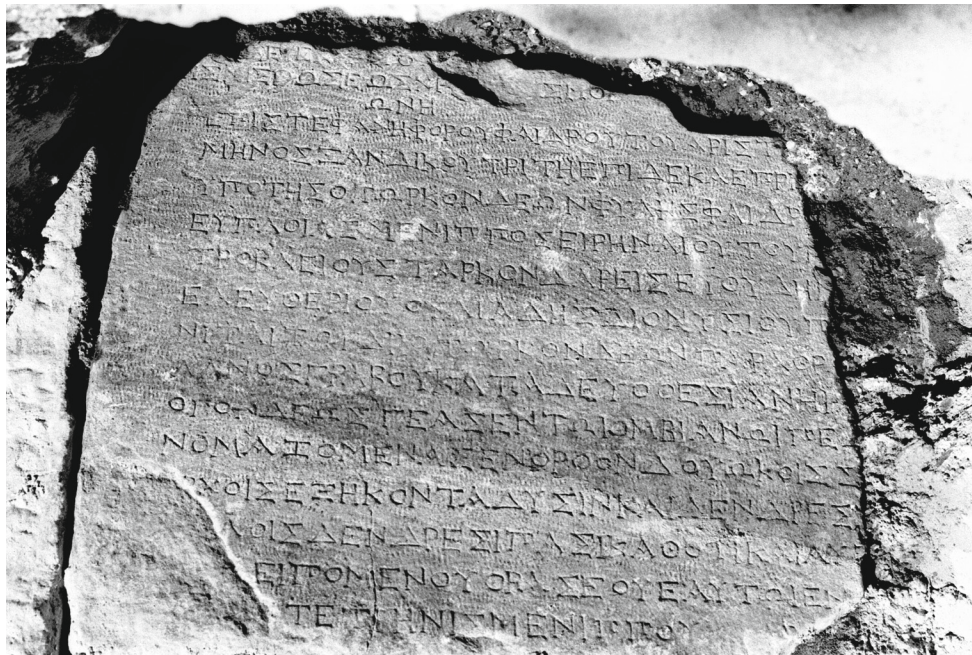 ΩΝΗ
ΕΠΙΣΤΕΦΑΝΗΦΟΡΟΥΦΑΙΔΡΟΥΤΟΥΑΡΙΣΤ
ΜΗΝΟΣΞΑΝΔΙΚΟΥΤΡΙΤΗΕΠΙΔΕΚΑΕΠΡΙ
ΥΠΟΤΗΣΟΤΩΡΚΟΝΔΕΩΝΦΥΛΗΣΦΑΙΔΡ
ΕΥΠΛΟΙΑΣΜΕΝΙΠΠΟΣΕΙΡΗΝΑΙΟΥΤΟΥ
ΤΡΟΚΛΕΙΟΥΣΤΑΡΚΟΝΔΑΡΕΙΣΕΤΟΥΔΗΜ
ΕΛΕΥΘΕΡΙΟΥΟΥΛΙΑΔΗΣΔΙΟΝΥΣΙΟΥΤ
ΟΤΩΡΚΟΝΔΕΩΝ
ΚΑΤΑΔΕΥΟΘΕΣΙΑΝΗΡ
ΟΠΟΝΔΕΩΣΓΕΑΣΕΝΤΩΙΟΜΒΙΑΝΩΙΠΕ
ΝΟΜΑΖΟΜΕΝΑΣΕΝΟΡΘΟΝΔΟΥΩΚΟΙΣΣ
ΡΧΟΙΣΕΞΗΚΟΝΤΑΔΥΣΙΝΚΑΙΔΕΝΔΡΕΣ
ΛΟΙΣΔΕΝΔΡΕΣΙΠΑΣΙΚΑΘΟΤΙΚΑΙΑ
ΕΙΤΡΟΜΕΝΟΥΘΡΑΣΣΕΟΥΕΑΥΤΩΙΕΝ
ΜΕΝΙΠΠΟΥ